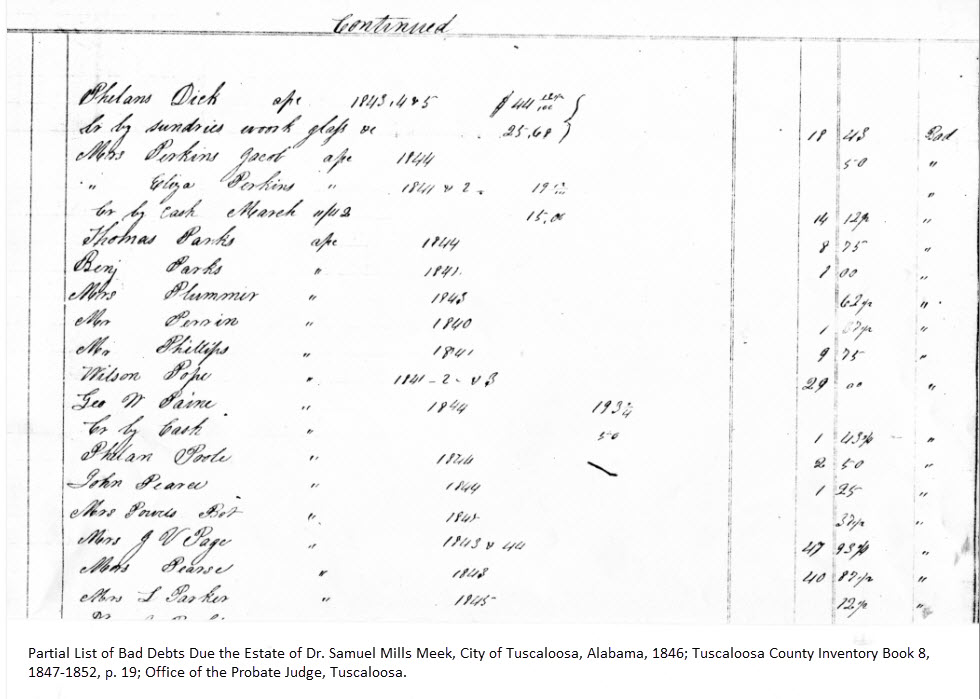 Continued
Phelans Dick apc 1843, 4 & 5 $44
Cr by sundries woork glass &c 25,68 18 43 Bad
Mrs Perkins Jacob apc 1844 50 "
" Eliza Perkins " 1841 & 2 19 "
Cr by Cash March 15,00 14 12½ "
Thomas Parks apc 1844 8 75 "
Benj Parks " 1841 1 00 "
Mrs Plummer " 1843 62½ "
Mr Perrin " 1840 1 "
Mr Phillips " 1841 9 75 "
Wilson Pope " 1841-2- & 3 29 00 "
Geo W Paine " 1844 193¾
Cr by Cash " 50 1 43¾ "
Phelan Poole " 1844 2 50 "
John Pearce " 1844 1 25 "
Mrs " 37½ "
Mrs J V Page " 1843 & 44 47 93¾ "
Mrs Pearse " 1843 40 87½ "
Mrs L Parker " 1845 12½ "
Partial List of Bad Debts Due the Estate of Dr. Samuel Mills Meek, City of Tuscaloosa, Alabama, 1846; Tuscaloosa County Inventory Book 8,
1847-1852, p. 19; Office of the Probate Judge, Tuscaloosa.